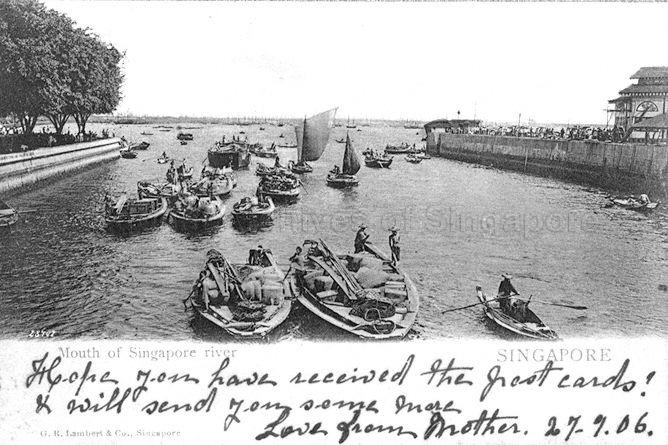 Archives of Singapore
23702
Mouth of Singapore river
SINGAPORE
Hope you have received the post cards!
& will send you some more
G. R. Lambert & Co., Singapore
Love from Mother. 27-9.06.